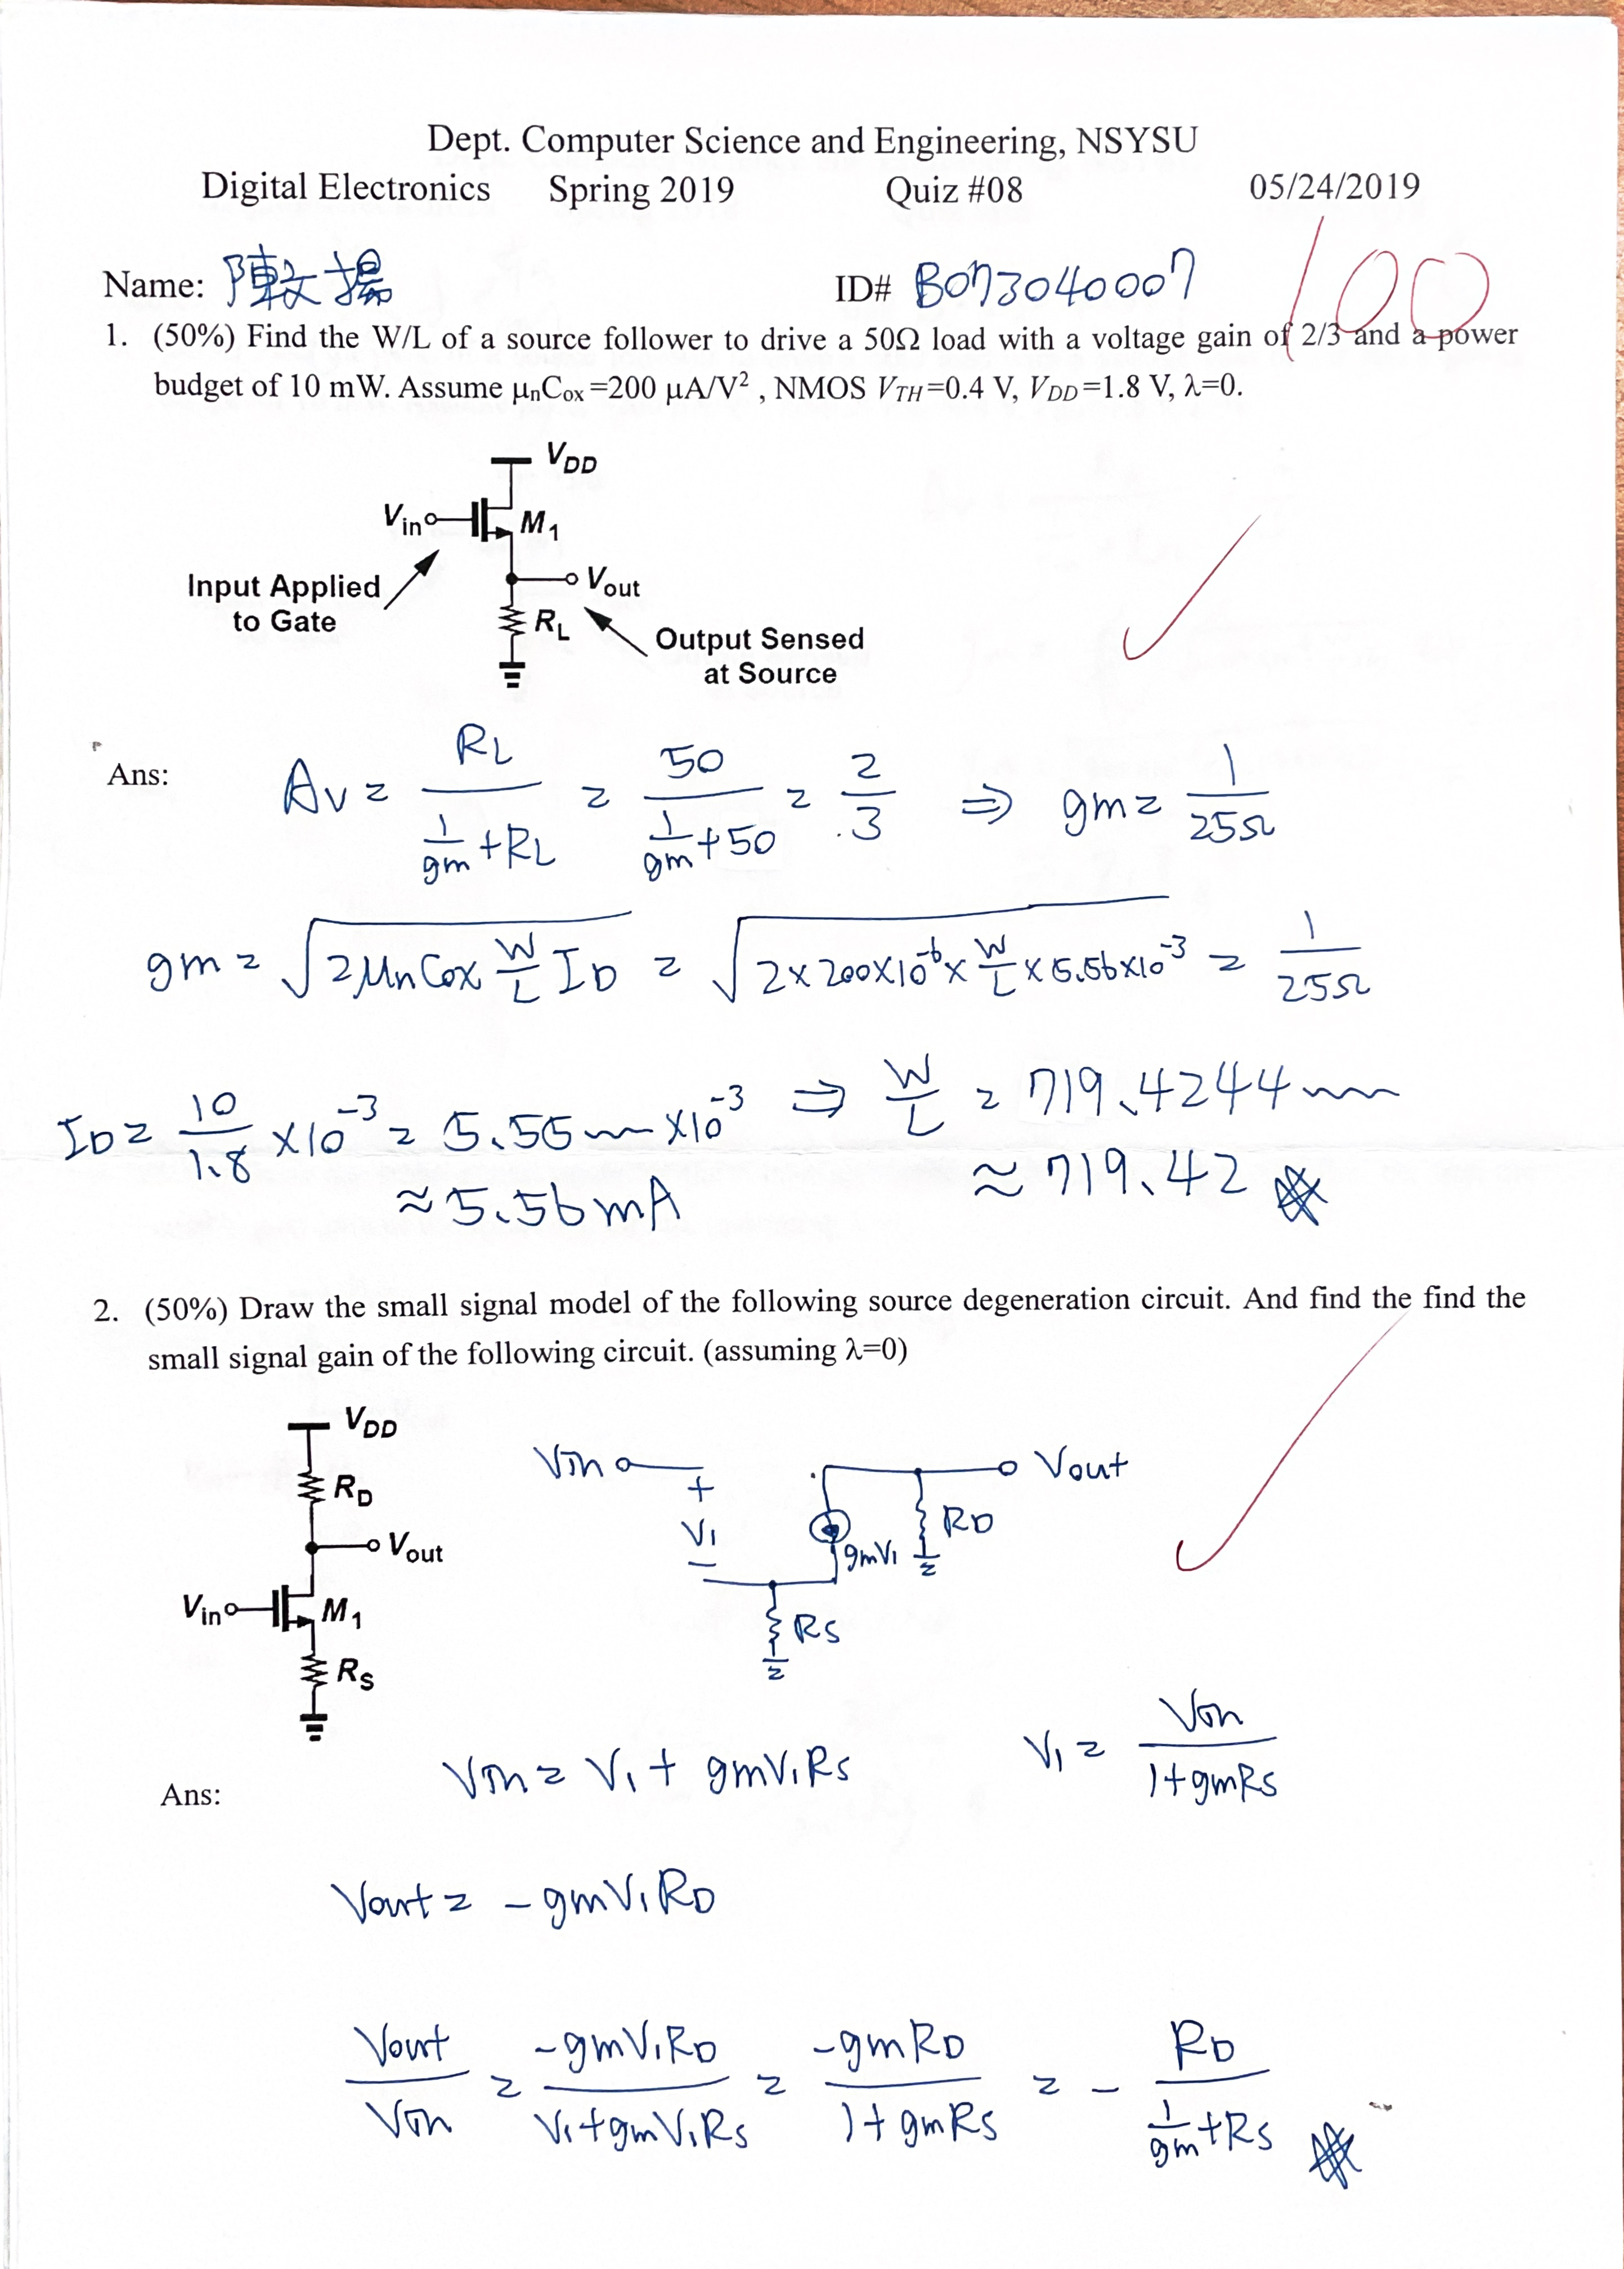 Dept. Computer Science and Engineering, NSYSU
Digital Electronics Spring 2019 Quiz #08 05/24/2019
100
Name: 陳文揚 ID# B073040007
1. (50%) Find the W/L of a source follower to drive a 50Ω load with a voltage gain of 2/3 and a power
budget of 10 mW. Assume μnCox =200 μA/V² , NMOS VTH=0.4 V, VDD=1.8 V, λ=0.
VDD
Vin M1
Input Applied
to Gate
Vout
RL
Output Sensed
at Source
Ans: Av = RL / (1/gm + RL) = 50 / (1/gm + 50) = 2/3 ⇒ gm = 1/25Ω
gm = √(2μnCox W/L ID) = √(2×200×10⁻⁶× W/L ×5.56×10⁻³) = 1/25Ω
ID = 10/1.8 ×10⁻³ = 5.55 ×10⁻³ ⇒ W/L = 719.4244
≈ 5.56mA ≈ 719.42
2. (50%) Draw the small signal model of the following source degeneration circuit. And find the find the
small signal gain of the following circuit. (assuming λ=0)
VDD
RD
Vout
Vin M1
RS
Vin + V1 − gmV1 RD Vout
RS
Ans: Vin = V1 + gmV1RS V1 = Vin / (1+gmRS)
Vout = −gmV1RD
Vout/Vin = −gmV1RD / (V1+gmV1RS) = −gmRD / (1+gmRS) = − RD / (1/gm + RS)